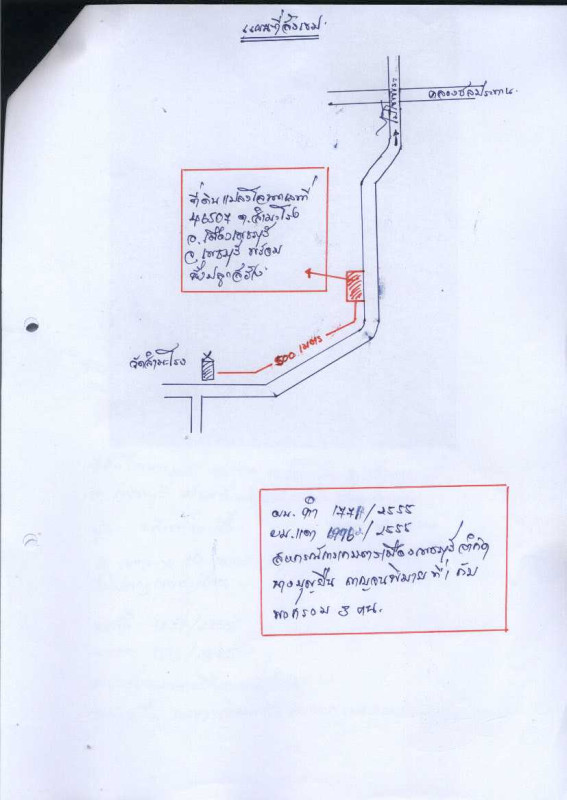 แผนที่สังเขป
คลองชลประทาน
ที่ดินแปลงโฉนดเลขที่
46507 ต.สำมะโรง
อ.เมืองเพชรบุรี
จ.เพชรบุรี พร้อม
สิ่งปลูกสร้าง
500 เมตร
วัดสำมะโรง
ผบ. ดำ /2555
ผบ. แดง /2555
สหกรณ์การเกษตรเมืองเพชรบุรี จำกัด
นางบุญยืน กาญจนพิมาย ที่ 1 กับ
พวกรวม 3 คน.